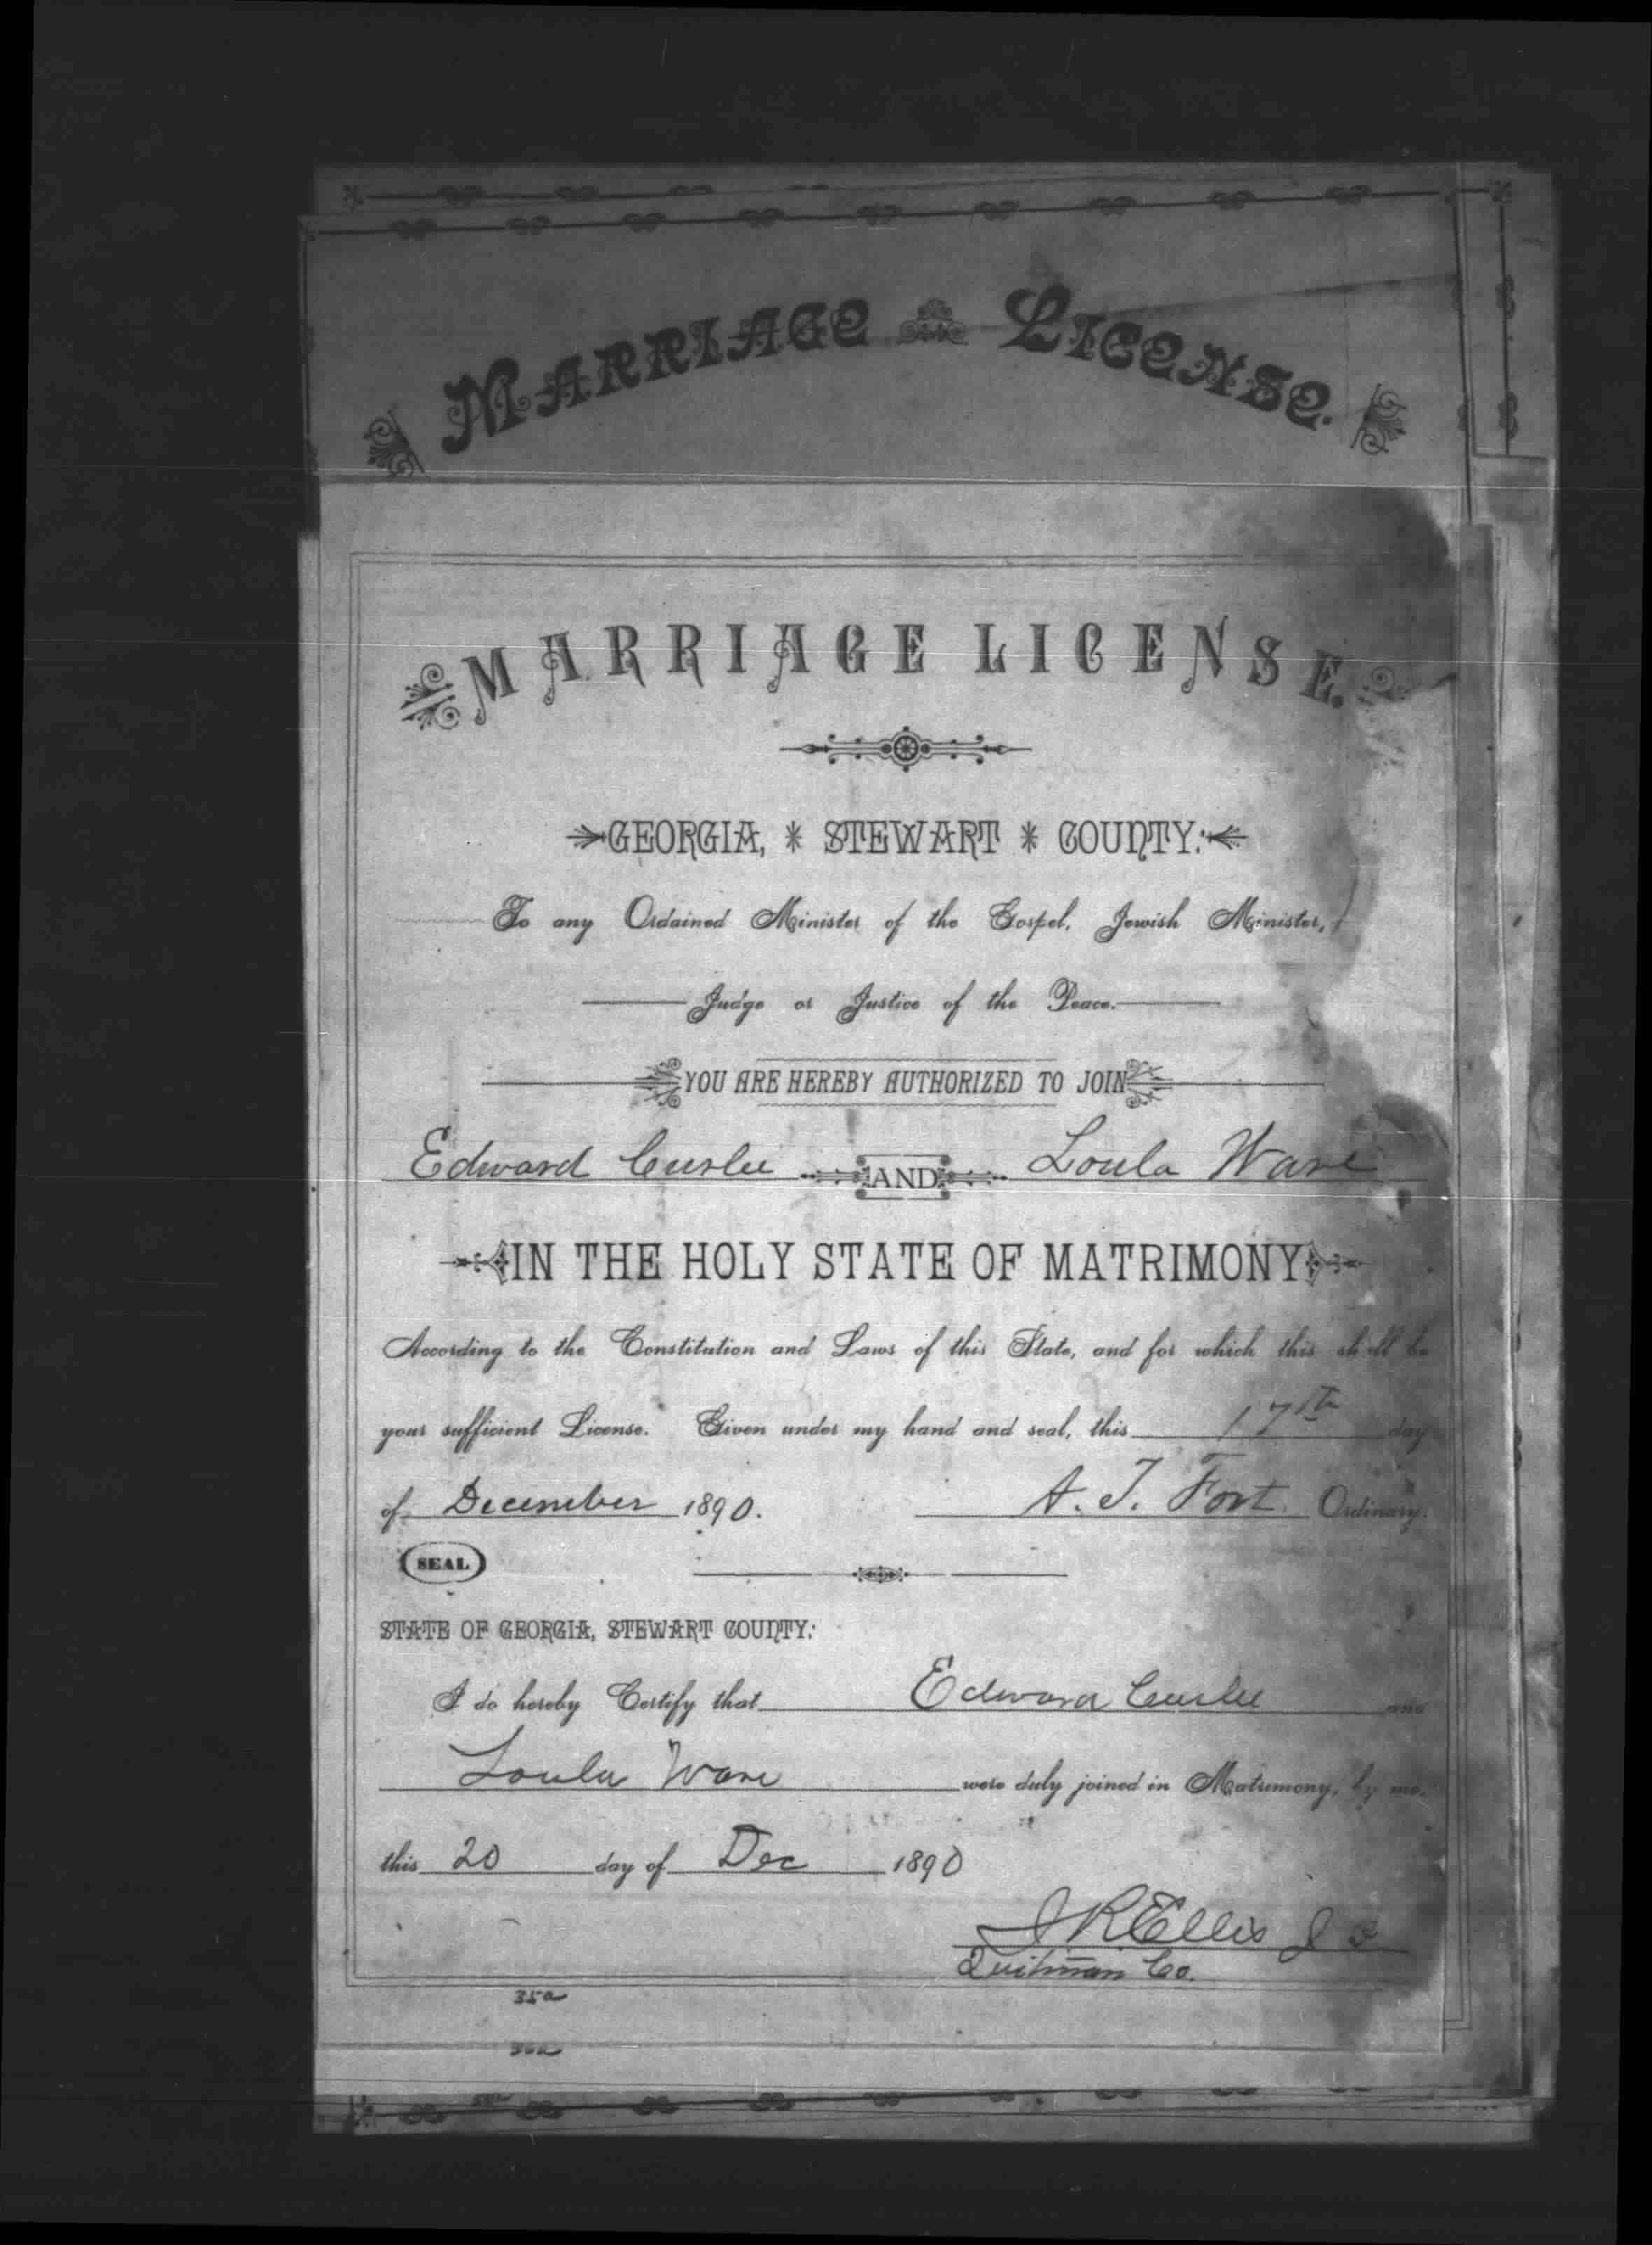 MARRIAGE LICENSE.
MARRIAGE LICENSE.
GEORGIA, * STEWART * COUNTY:
To any Ordained Minister of the Gospel, Jewish Minister,
Judge or Justice of the Peace.
YOU ARE HEREBY AUTHORIZED TO JOIN
Edward Curlee AND Loula Ware
IN THE HOLY STATE OF MATRIMONY
According to the Constitution and Laws of this State, and for which this shall be
your sufficient License. Given under my hand and seal, this 17th day
of December 1890. A. T. Fort. Ordinary.
SEAL
STATE OF GEORGIA, STEWART COUNTY:
I do hereby Certify that Edward Curlee and
Loula Ware were duly joined in Matrimony, by me,
this 20 day of Dec 1890
J R Ellis J P
Quitman Co.
352